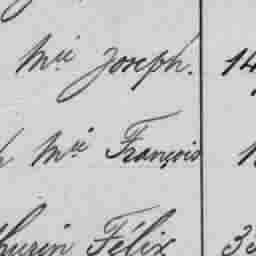 Mie Joseph. 14
Mie François
hurin Félix 3